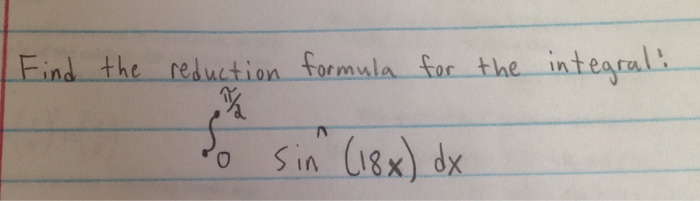 Find the reduction formula for the integral:
∫₀^(π/2) sinⁿ (18x) dx